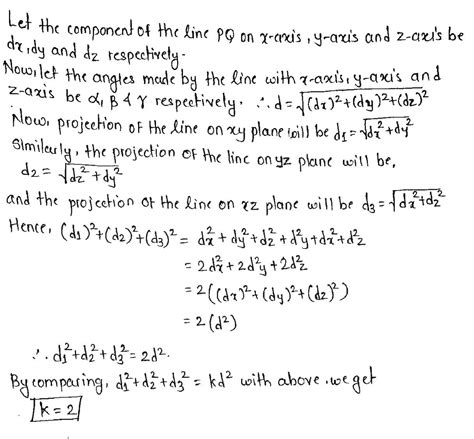 Let the component of the line PQ on x-axis, y-axis and z-axis be
dx, dy and dz respectively.
Now, let the angles made by the line with x-axis, y-axis and
z-axis be α, β & γ respectively. ∴ d = √((dx)²+(dy)²+(dz)²
Now, projection of the line on xy plane will be d₁ = √dx²+dy²
Similarly, the projection of the line on yz plane will be,
d₂ = √dz²+dy²
and the projection of the line on xz plane will be d₃ = √dx²+dz²
Hence, (d₁)²+(d₂)²+(d₃)² = dx²+dy²+dz²+d²y+dx²+d²z
= 2d²x+2d²y+2d²z
= 2((dx)²+(dy)²+(dz)²)
= 2(d²)
∴ d₁²+d₂²+d₃² = 2d².
By comparing, d₁²+d₂²+d₃² = kd² with above. we get
k = 2